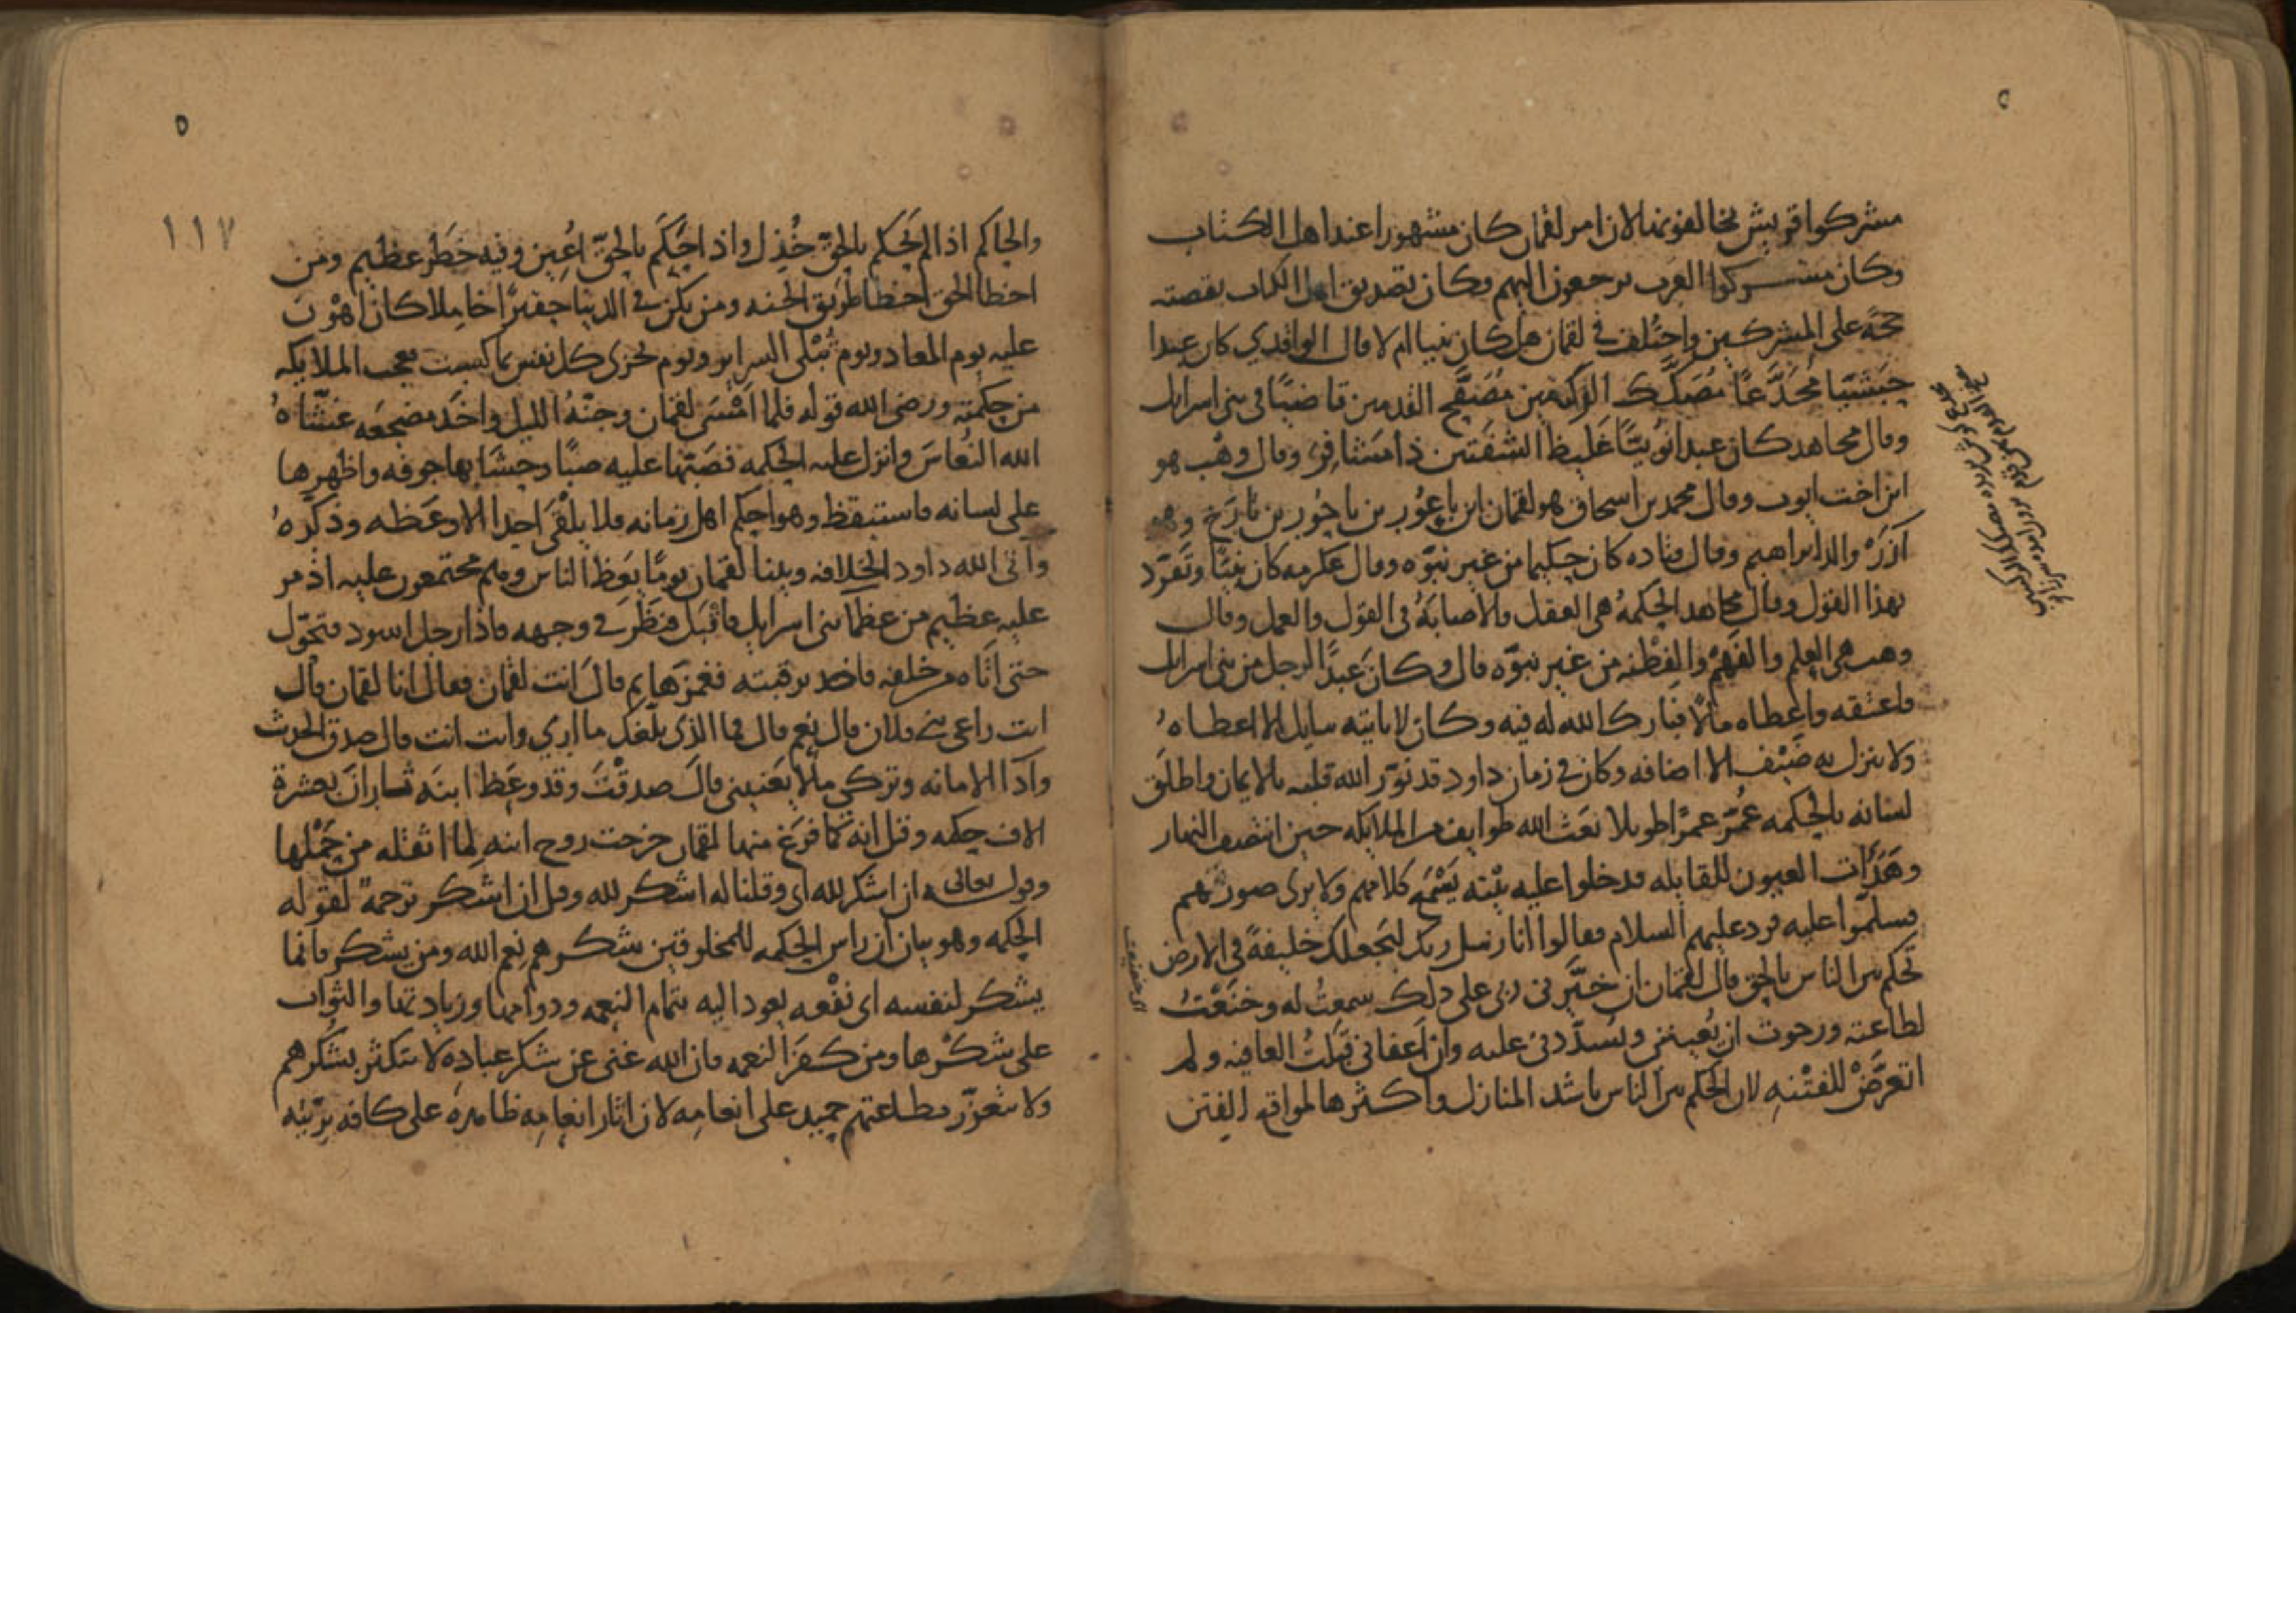 مشركوا قريش لخالفونها لان امر لقمان كان مشهورا عند اهل الكتاب
وكان مشركوا العرب يرجعون اليهم وكان تصديق اهل الكتاب بقصته
حجة على المشركين واختُلف في لقمان هل كان نبيا ام لا قال الواقدي كان عبدا
حبشيّا مُجَدَّعًا مُصَكَّك الركبتين مُصَفَّح القدمين قاضيًا في بني اسرايل
وقال مجاهد كان عبدا نُوبيّا غَليظ الشفتين ذا مَشَافِر وقال وهْب هو
ابن اخت ايوب وقال محمد بن اسحاق هو لقمان ابن باعُور بن ناحُور بن تارَخ وهو
آزَرْ والد ابراهيم وقال قتاده كان حكيما من غير نبوّه وقال عكرمه كان نبيّا وتَفرّد
بهذا القول وقال مجاهد الحكمهُ هي العقل والاصابَهُ في القول والعمل وقال
وهب هي العِلم والفَهْمُ والفِطْنه من غير نبوّه قال وكان عَبدًا لرجل من بني اسرايل
فاعتقه واعطاه مالًا فبارك الله له فيه وكان لا ياتيه سايل الا اعطاهُ
ولا ينزل به ضَيْف الا اضافه وكان في زمان داود قد نوّر الله قلبه بالايمان واطلَق
لسانه بالحكمه عُمّر عمرًا طويلا بعَث الله طوايف من الملايكه حين انتصف النهار
وهَدَأت العيون للقايله فدخلوا عليه بيْته يَسْمَع كلامهم ولا يرى صورتهم
فسلّموا عليه فرد عليهم السلام فقالوا انا رسل ربك لنَجعلك خليفةً في الارض
تحكم بين الناس بالحق قال لقمان ان خَيَّرني ربي على ذلك سمعتُ له وخنَعْتُ
لطاعته ورجوت ان يُعينني ويُسدّدني عليه وان اعفاني قبلتُ العافيه ولم
اتعرّضْ للفتْنهِ لان الحكم بين الناس باشد المنازل واكثرها لمواقع الفتن
اي خضعت
١١٧
والحاكم اذا لم يَحكم بالحق خُذِل واذا حَكَم بالحقّ اُعين وفيه خَطر عظيم ومن
اخطا الحق اخطا طريق الجنه ومن يكن في الدنيا حقيرًا خامِلا كان اهْوَن
عليه يوم المعاد ويوم تُبْلى السراير ويوم تجزى كل نفس بما كسبت فعجب الملايكه
من حِكمته ورضى الله قوله فلما امْسَى لقمان وجنّهُ الليل واخَذ مضجعَه غَشّاهُ
الله النُعاسَ وانزل عليه الحكمه فصَبّها عليه صبّا وحشَا بها جوفه واظهرها
على لسانه فاستيقظ وهو احكم اهل زمانه فلا يلْقَى احدا الا وعَظه وذكّرهُ
وآتى الله داود الخِلافه وبينا لقمان يومًا يَعظ الناس وهم مجتمعون عليه اذ مر
عليه عظيم من عظما بني اسرايل فاقْبَل فنظَر في وجهه فاذا رجل اسود فتحوّل
حتى اتاه من خلفه فاخذ برقبته فغمزها ثم قالَ انت لقمان فقال انا لقمان قال
انت راعي بني فلان قال نعم قال فما الذي بلغك ما ارى وانت انت قال صدق الحديث
وآدا الامانه وتركي ما لا يَعنيني قالَ صدقْتَ وقد وعَظ ابنَه ثاران بعشرة
الاف حِكمه وقيل انه لما فرَغ منها لقمان خرجت روح ابنه لِما اثقله من حَمْلها
وقوله تعالى ان اشكر لله اي وقلنا له اشكر لله وقيل ان اشكر ترجمةً لقوله
الحكمه وهو بيان ان راس الحكمه للمخلوقين شكرهم نعم الله ومن يشكر فانما
يشكر لنفسه اي نفْعه يعود اليه بتمام النعمه ودوامها وزيادتها والثواب
على شكْرها ومن كفَرَ النعمه فان الله غني عن شكر عباده لا يتكثر بشكرهم
ولا يتعزّز بطاعتهم حميد على انعامه لان اثار انعامِه ظاهره على كافه برّيته